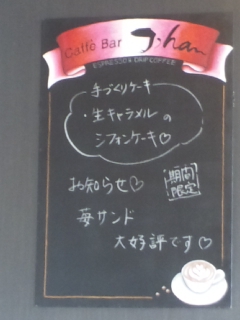 Caffé Bar J・han
ESPRESSO & DRIP COFFEE
手づくりケーキ
・生キャラメルの
シフォンケーキ♡
お知らせ♡
期間
限定
苺サンド
大好評です♡